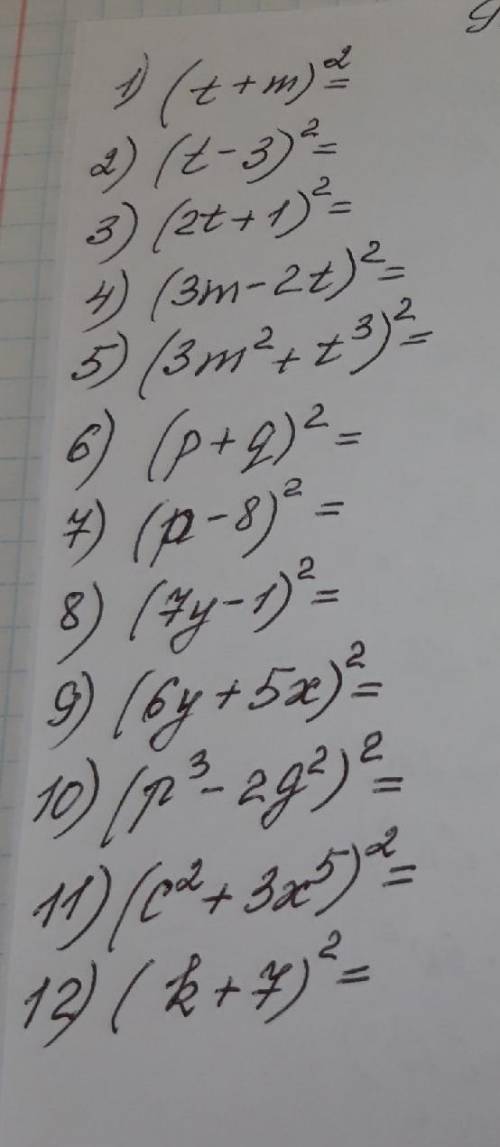 1) (t + m)²=
2) (t - 3)²=
3) (2t + 1)²=
4) (3m - 2t)²=
5) (3m² + t³)²=
6) (p + q)²=
7) (p - 8)²=
8) (7y - 1)²=
9) (6y + 5x)²=
10) (p³ - 2q²)²=
11) (c² + 3x⁵)²=
12) (k + 7)²=